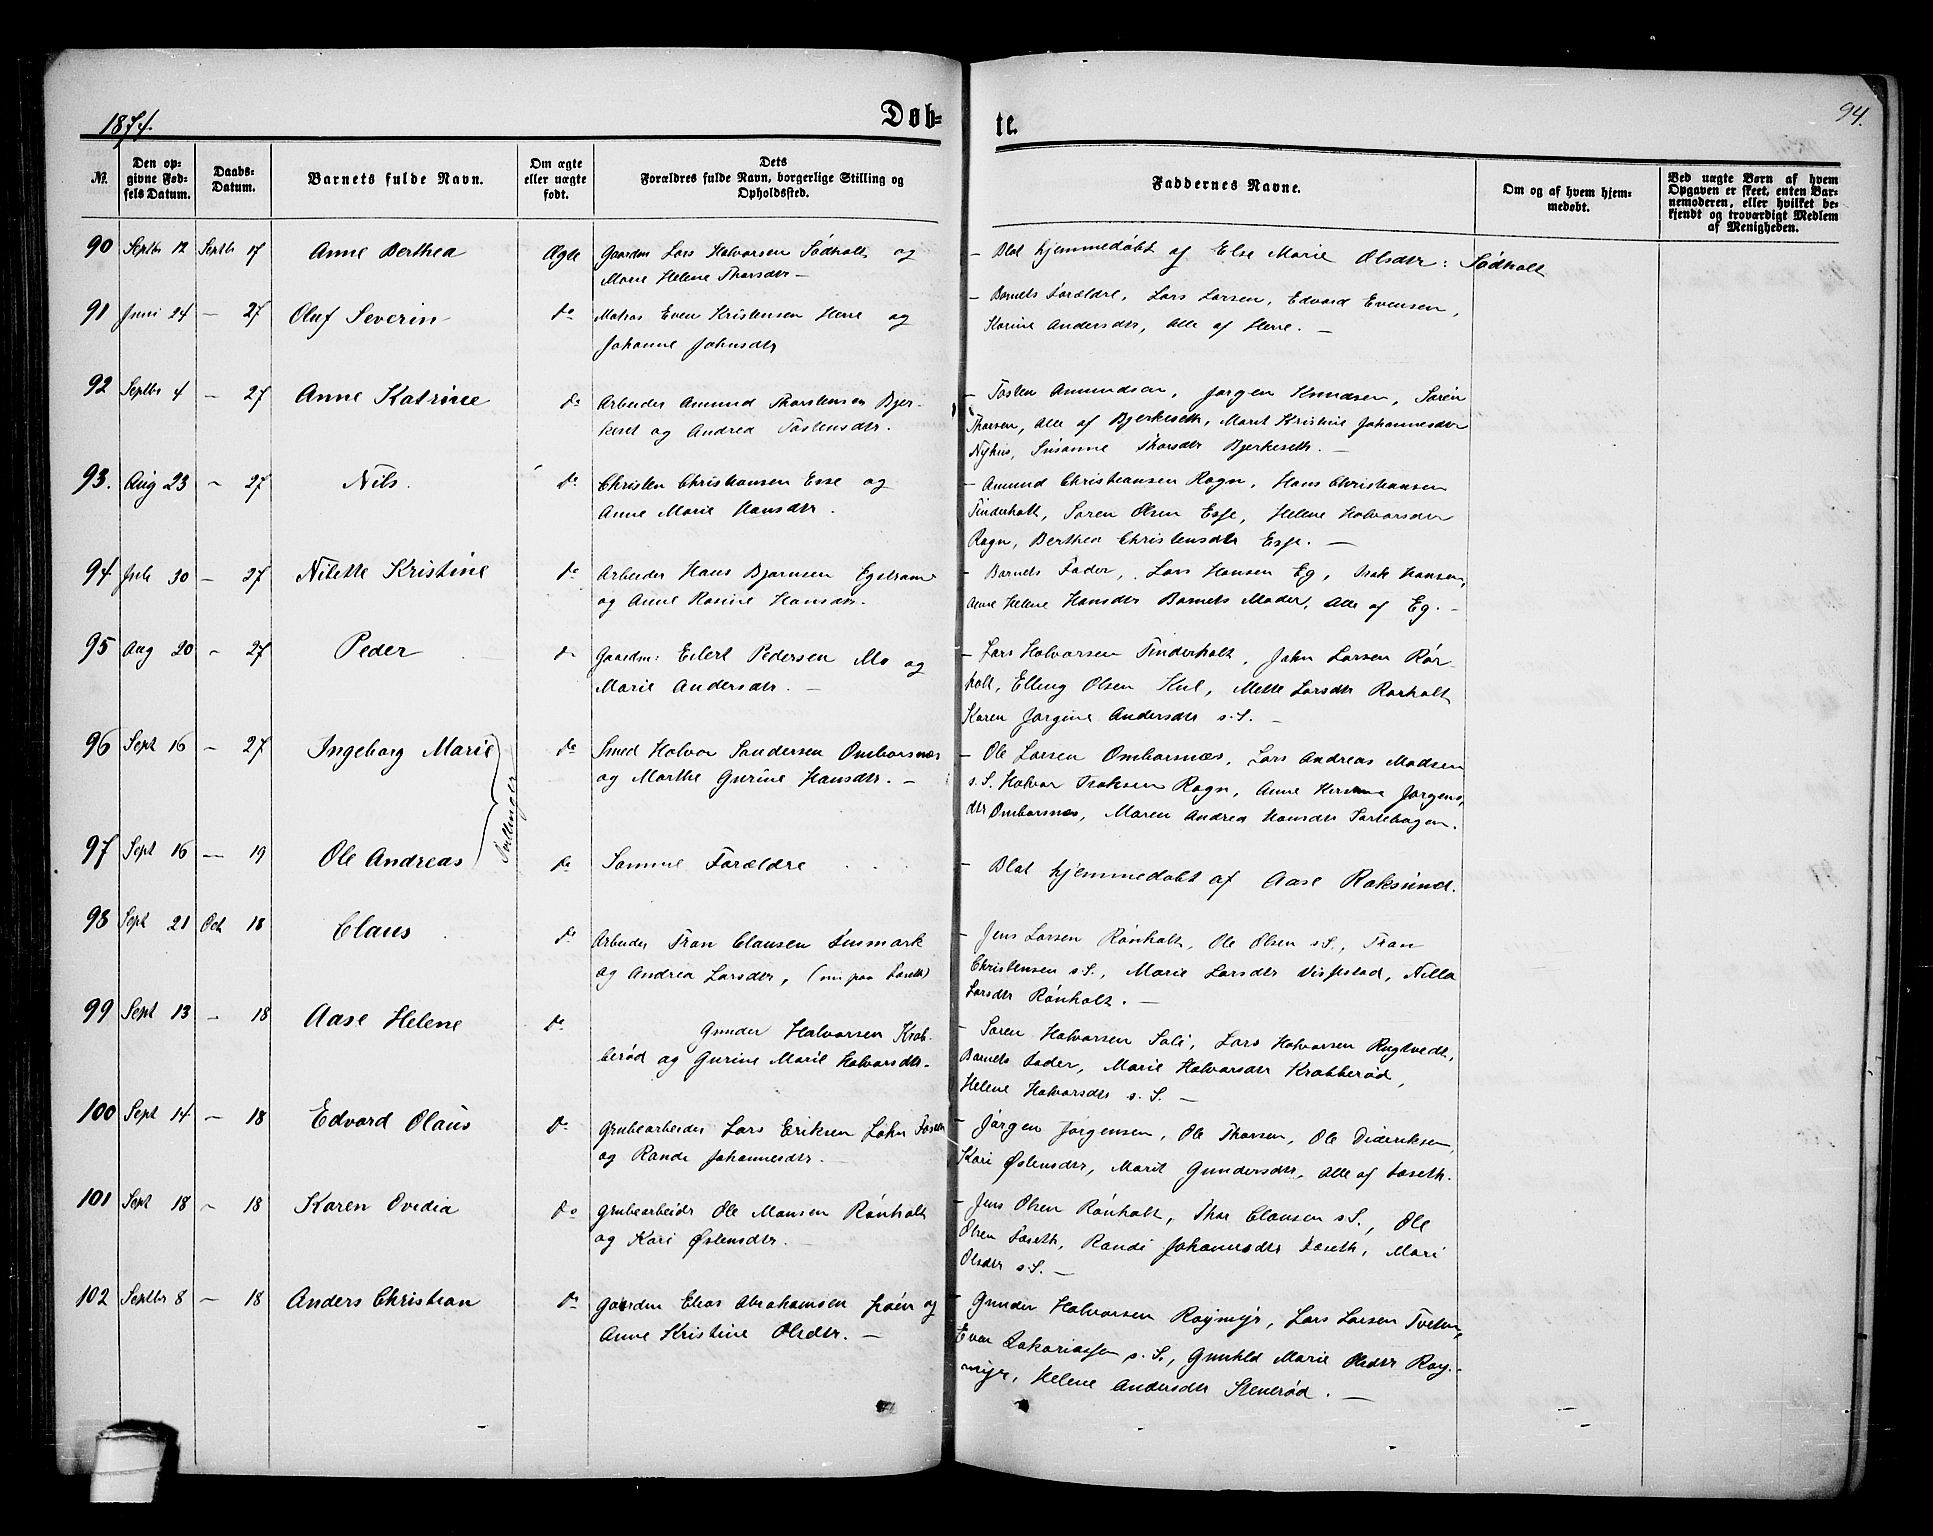 1874.
Døb-
te.
94.
Nr.
Den op-
givne Fød-
sels Datum.
Daabs-
Datum.
Barnets fulde Navn.
Om ægte
eller uægte
født.
Dets
Forældres fulde Navn, borgerlige Stilling og
Opholdssted.
Faddernes Navne.
Om og af hvem hjem-
medøbt.
Ved uægte Børn af hvem
Opgaven er skeet, enten Bar-
nemoderen, eller hvilket be-
kjendt og troværdigt Medlem
af Menigheden.
90 Septbr 12 Septbr 17 Anne Berthea Ægte Gaardm Lars Halvorsen Sødholt og
Maren Helene Thorsdtr —
— Blot hjemmedøbt af Else Marie Olsdtr: Sødholt
91 Juni 24 — 27 Oluf Severin do Matros Even Kristensen Herre og
Johanne Johnsdtr
— Barnets Forældre, Lars Larsen, Edvard Evensen,
Karine Andersdtr, Alle af Herre. —
92 Septbr 4 — 27 Anne Katrine do Arbeider Amund Thorstensen Bjer-
keset og Andrea Tostensdtr.
— Tosten Amundsen, Jørgen Knudsen, Søren
Thorsen, Alle af Bjerkeseth, Marit Kristine Johannesdtr
Nyhus, Susanne Thorsdtr Bjerkeseth. —
93. Aug 23 — 27 Nils. do Christen Christiansen Esse og
Anne Marie Hansdtr.
— Amund Christiansen Rogn, Hans Christiansen
Tinderholt, Søren Olsen Esse, Helene Halvorsdtr
Rogn, Berthea Christensdtr Esse. —
94. Juli 30 — 27 Nilette Kristine do Arbeider Hans Bjørnsen Egstrand
og Anne Rosine Hansdtr.
— Barnets Fader, Lars Hansen Eg, Isak Hansen,
Anne Helene Hansdtr Barnets Moder, Alle af Eg. —
95 Aug 20 — 27 Peder do Gaardm: Eilert Pedersen Mo og
Marie Andersdtr. —
— Lars Halvorsen Tinderholt, John Larsen Rør-
holt, Elling Olsen Kil, Mette Larsdtr Rørholt
Karen Jørgine Andersdtr s.S. —
96 Sept 16 — 27 Ingeborg Marie do Smed Halvor Sondersen Omborsnæs
og Marthe Gurine Hansdtr. —
— Ole Larsen Omborsnæs, Lars Andreas Madsen
s.S. Halvor Isaksen Rogn, Anne Jørgens-
dtr Omborsnæs, Maren Andrea Hansdtr Tortehagen.
Tvillinger
97 Sept 16 — 19 Ole Andreas do Samme Forældre
— Blot hjemmedøbt af Aase Roksund.
98 Sept 21 Oct 18 Claus do Arbeider Tron Clausen Finmark
og Andrea Larsdtr, (nu paa Foseth)
— Jens Larsen Rønholt, Ole Olsen s.S., Tron
Christensen s.S., Marie Larsdtr Visstad, Nilla
Larsdtr Rønholt. —
99 Sept 13 — 18 Aase Helene do Gunder Halvorsen Krab-
berød og Gurine Marie Halvorsdtr.
— Søren Halvorsen Soli, Lars Halvorsen Rugtvedt,
Barnets Fader, Marie Halvorsdtr Krabberød,
Helene Halvorsdtr s.S. —
100 Sept 14 — 18 Edvard Olaus do Grubearbeider Lars Eriksen Løkn Foseth
og Rande Johannesdtr. —
— Jørgen Jørgensen, Ole Thorsen, Ole Dideriksen,
Kari Østensdtr, Marit Gundersdtr, Alle af Foseth.
101 Sept 18 — 18 Karen Ovedia do Grubearbeidr Ole Monsen Rønholt
og Kari Østensdtr. —
— Jens Olsen Rønholt, Thor Clausen s.S., Ole
Olsen Foseth, Randi Johannesdtr Foseth, Mari
Olsdtr s.S. —
102 Septbr 8 — 18 Anders Christian do Gaardm Elias Abrahamsen og
Anne Kristine Olsdtr. —
— Gunder Halvorsen Roymyr, Lars Larsen Tveten,
Even Zakariassen s.S., Gunhild Marie Olsdtr Roy-
myr, Helene Andersdtr Stenerød. —